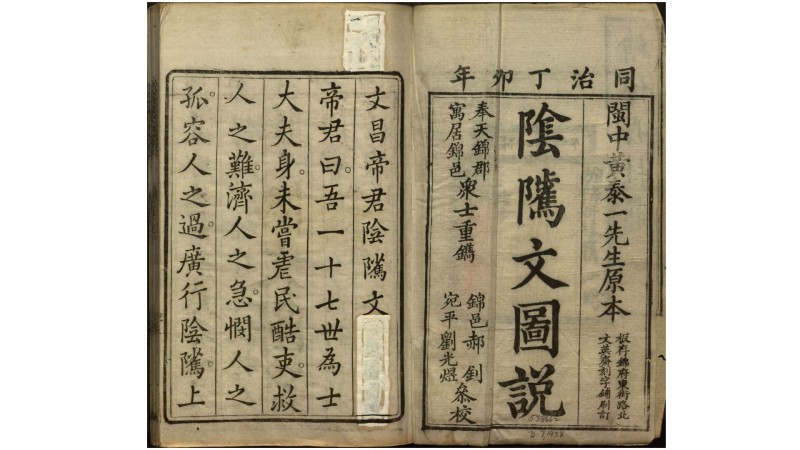 同治丁卯年
閩中黃泰一先生原本
板存錦府東街路北
文英齋刻字鋪刷訂
陰隲文圖説
奉天錦郡
寓居錦邑
衆士重鐫
錦邑郝釗
宛平劉光煜
叅校
文昌帝君陰隲文
帝君曰。吾一十七世為士
大夫身。未嘗虐民酷吏。救
人之難。濟人之急。憫人之
孤。容人之過。廣行陰隲。上